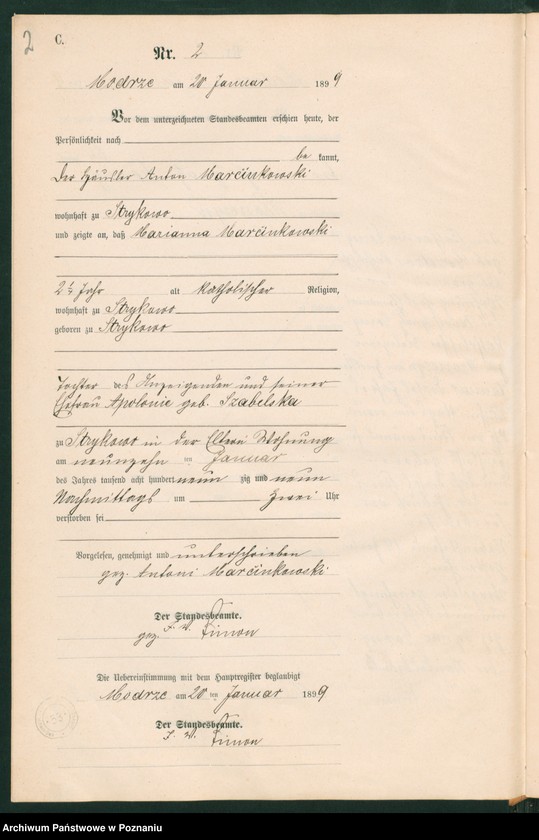 2
C.
Nr. 2
Modrze am 20 Januar 1899
Vor dem unterzeichneten Standesbeamten erschien heute, der
Persönlichkeit nach
be kannt,
Der Häusler Anton Marcinkowski
wohnhaft zu Strykowo
und zeigte an, daß Marianna Marcinkowski
2½ Jahr alt katholischer Religion,
wohnhaft zu Strykowo
geboren zu Strykowo
Tochter des Anzeigenden und seiner
Ehefrau Apolonie geb. Szabelska
zu Strykowo in der Eltern Wohnung
am neunzehn ten Januar
des Jahres tausend acht hundert neun zig und neun
Nachmittags um zwei Uhr
verstorben sei
Vorgelesen, genehmigt und unterschrieben
gez. Antoni Marcinkowski
Der Standesbeamte.
gez. I. V. Simon
Die Uebereinstimmung mit dem Hauptregister beglaubigt
Modrze am 20 ten Januar 1899
Der Standesbeamte.
I. V. Simon
Archiwum Państwowe w Poznaniu